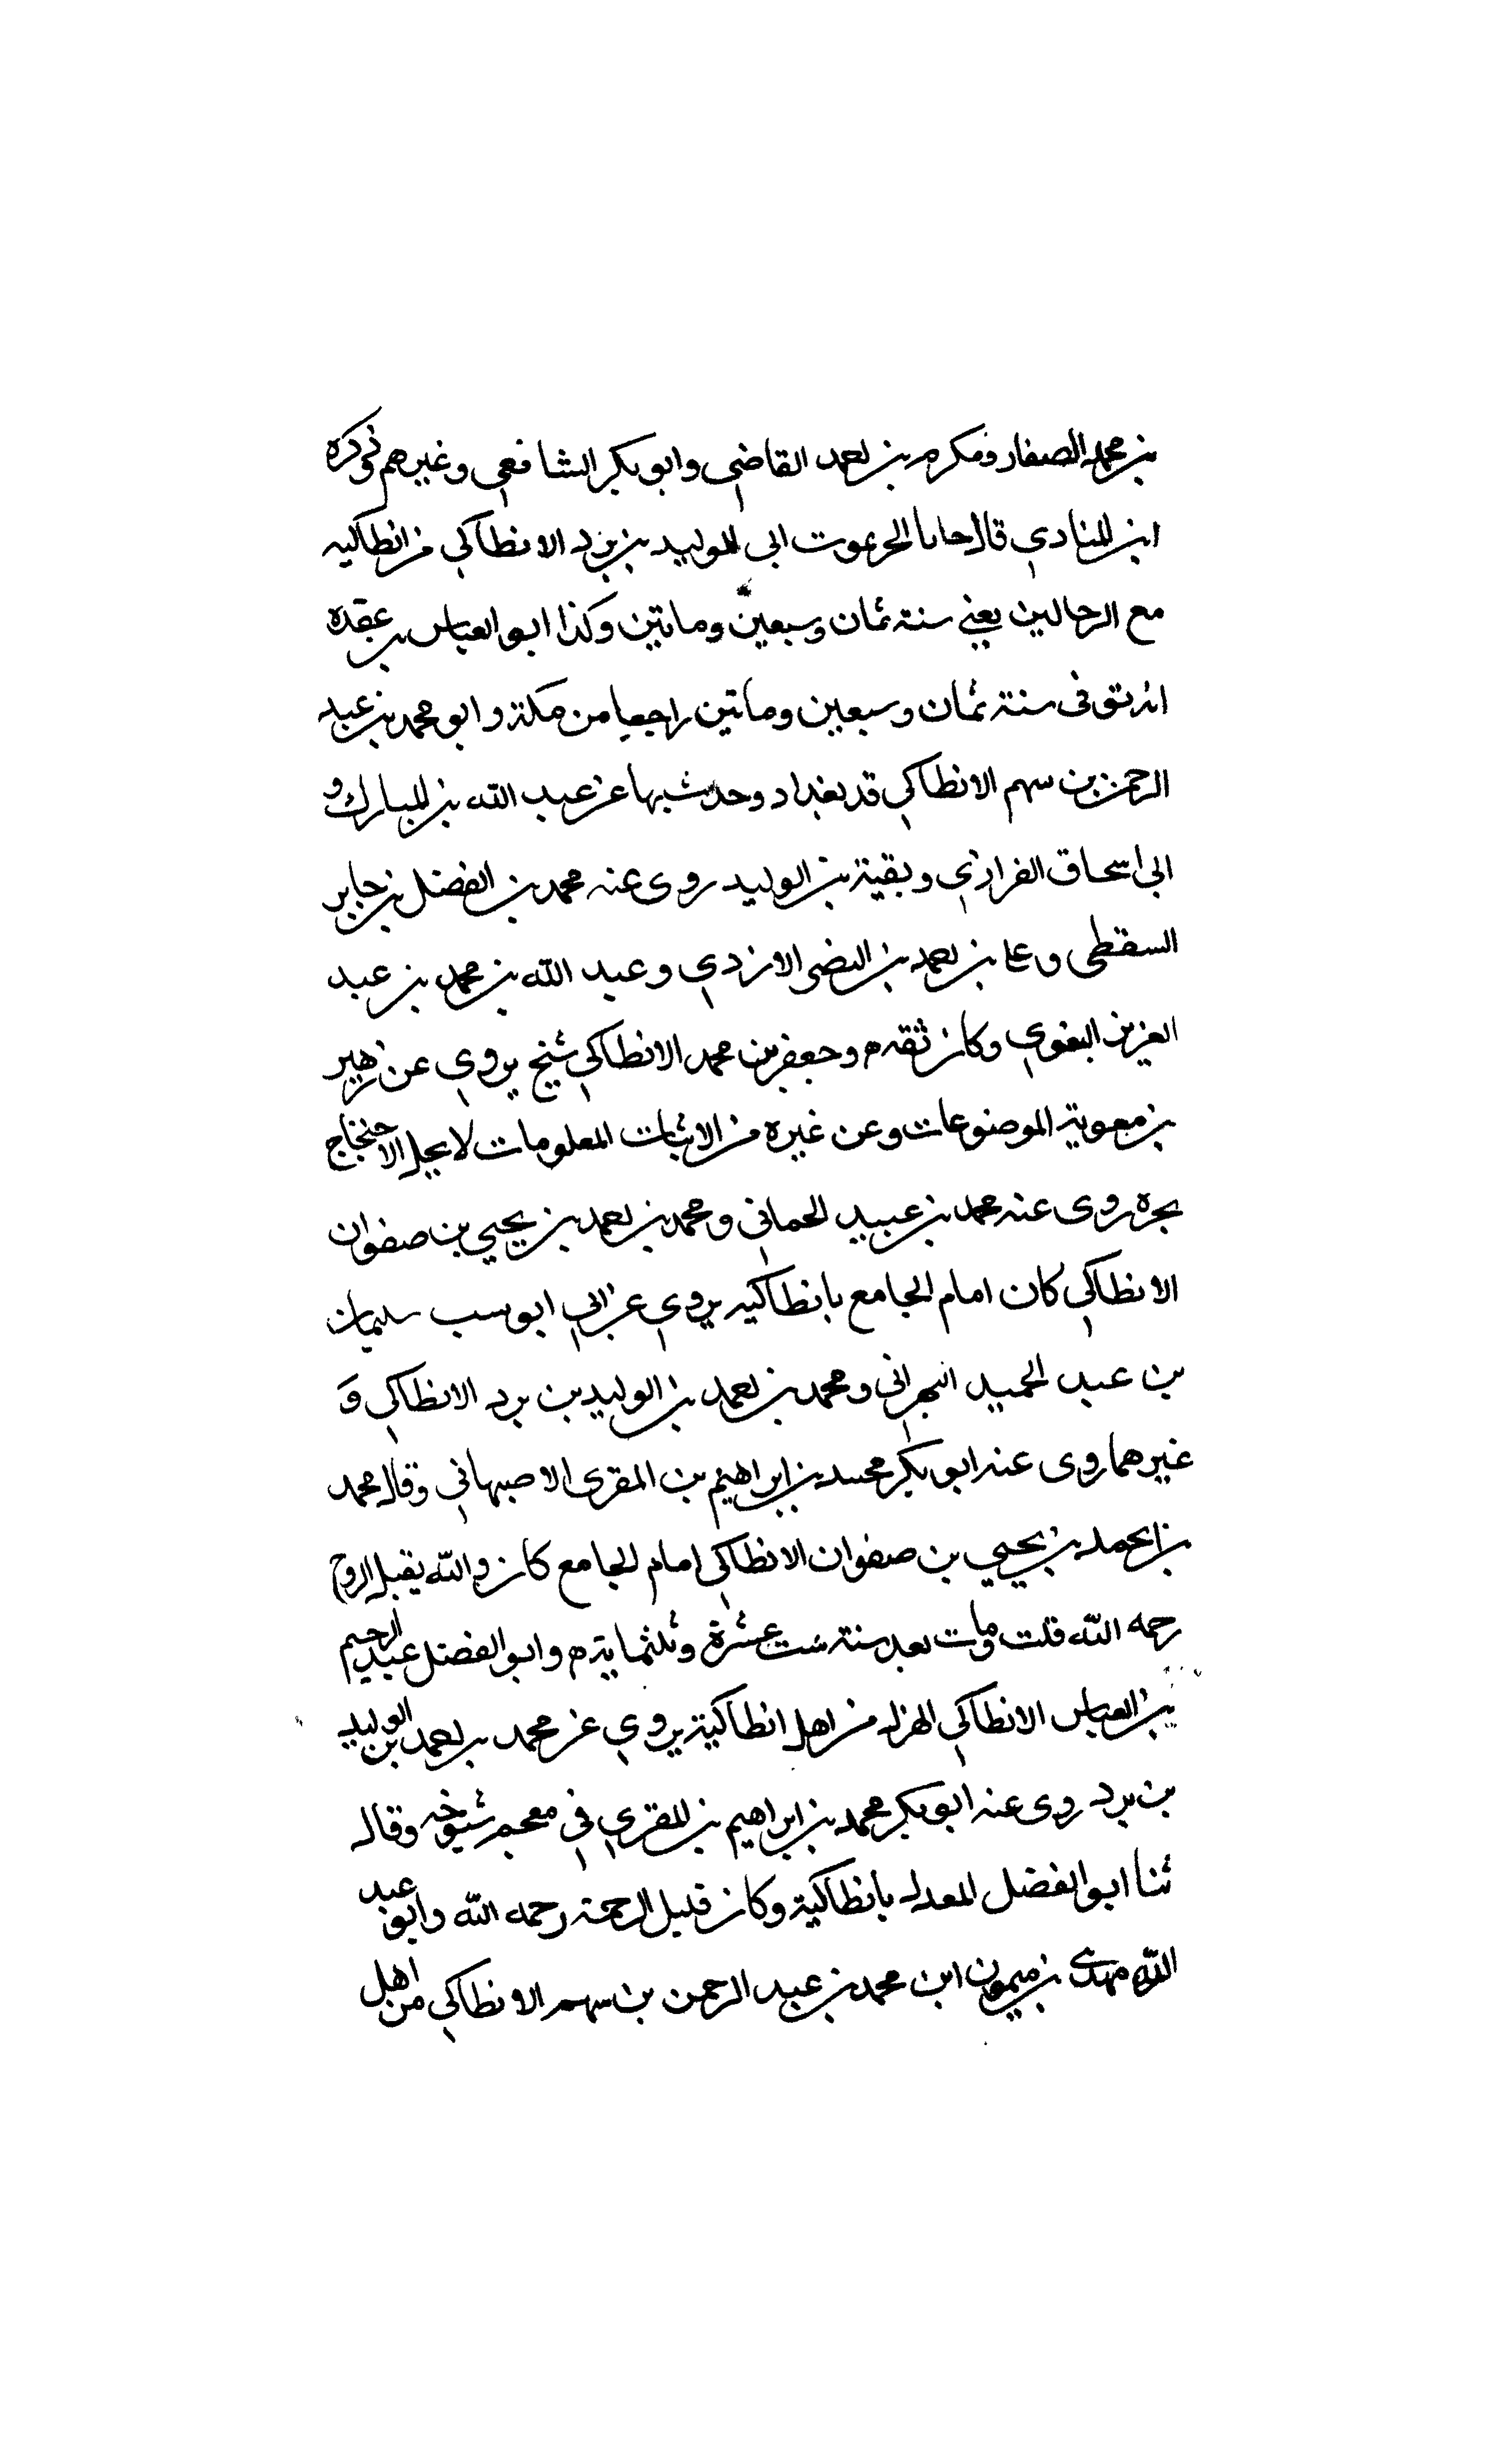 بن محمد الصفار ومكرم بن احمد القاضي وابو بكر الشافعي وغيرهم ذكره
ابن المنادي قال جانا الخبر بموت ابى الوليد بن برد الانطاكي من انطاكيه
مع الرحالين يعني سنة ثمان وسبعين وماتين وكذا ابو العباس بن عقده
انه توفى سنة ثمان وسبعين وماتين راجعا من مكة وابو محمد بن عبد
الرحمن بن سهم الانطاكي قد بغداد وحدث بها عن عبد الله بن المبارك و
ابى اسحاق الفزاري وبقية بن الوليد روى عنه محمد بن الفضل بن جابر
السقطى وعلى بن احمد بن النضر الازدي وعبد الله بن محمد بن عبد
العزيز البغوي وكان ثقه م وجعفر بن محمد الانطاكي شيخ يروي عن زهير
بن معوية الموضوعات وعن غيره من الاثبات المعلومات لا يحل الاحتجاج
بخبره روى عنه محمد بن عبيد الحمانى ومحمد بن احمد بن يحيي بن صفوان
الانطاكي كان امام الجامع بانطاكيه يروي عن ابي ايوب سليمان
بن عبد الحميد البهرانى ومحمد بن احمد بن الوليد بن برد الانطاكي و
غيرهما روى عنه ابو بكر محمد بن ابراهيم بن المقرى الاصبهاني وقال محمد
بن احمد بن يحيي بن صفوان الانطاكي امام الجامع كان والله يقبل الروح
رحمه الله قلت ومات بعد سنة ست عشرة وثلثماية م وابو الفضل عبد الرحيم
بن العباس الانطاكي من اهل انطاكية يروي عن محمد بن احمد بن الوليد
بن برد روى عنه ابو بكر محمد بن ابراهيم بن المقري في معجم شيوخه وقال
ثنا ابو الفضل المعدل بانطاكية وكان قليل الرحمة رحمه الله وابو عبد
الله مهدى بن ميمون ابن محمد بن عبد الرحمن بن سهم الانطاكي من اهل